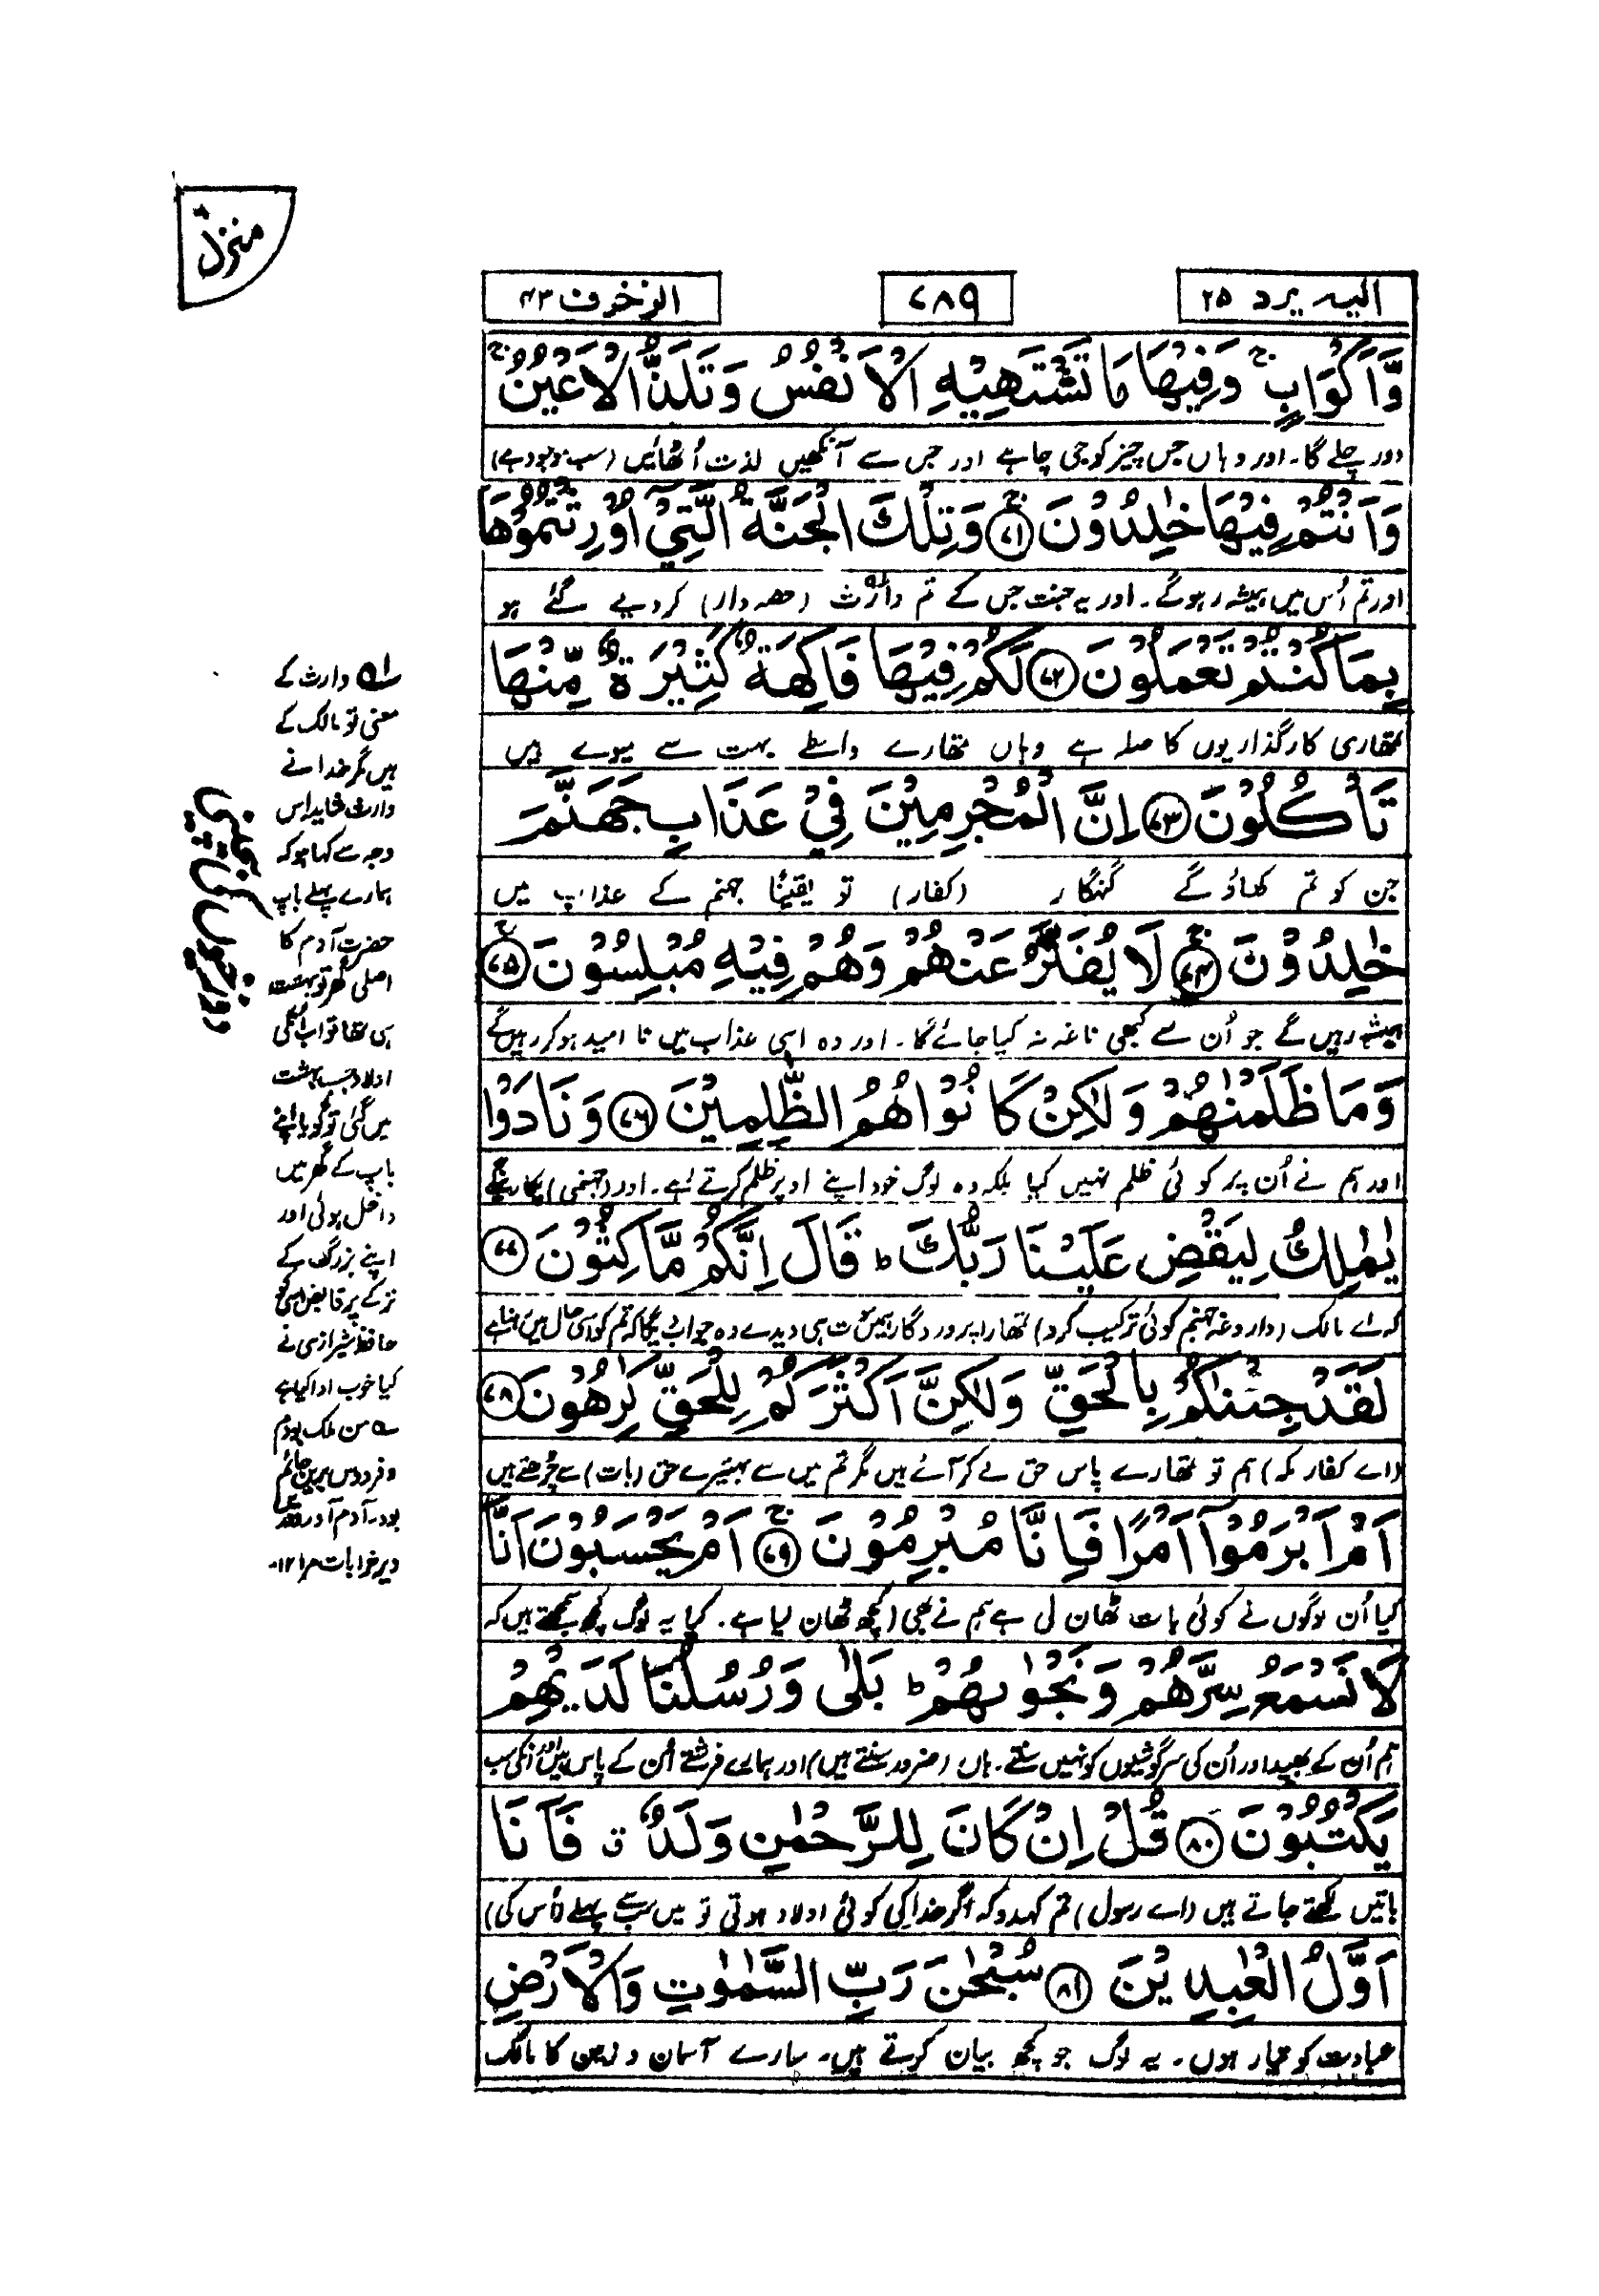 منزل
الیہ یرد ۲۵
۷۸۹
الزخرف ۴۳
وَّاَكْوَابٍ ۚ وَفِيْهَا مَا تَشْتَهِيْهِ الْاَنْفُسُ وَتَلَذُّ الْاَعْيُنُ ۚ
دور چلے گا۔ اور وہاں جس چیز کو جی چاہے اور جس سے آنکھیں لذت اُٹھائیں (سب موجود ہے)
وَاَنْتُمْ فِيْهَا خٰلِدُوْنَ ۚ ﴿۷۱﴾ وَتِلْكَ الْجَنَّةُ الَّتِيْٓ اُوْرِثْتُمُوْهَا
اور تم اُس میں ہمیشہ رہوگے۔ اور یہ جنت جس کے تم وارث (حصہ دار) کردیے گئے ہو
بِمَا كُنْتُمْ تَعْمَلُوْنَ ﴿۷۲﴾ لَكُمْ فِيْهَا فَاكِهَةٌ كَثِيْرَةٌ مِّنْهَا
تمھاری کارگذاریوں کا صلہ ہے وہاں تمھارے واسطے بہت سے میوے ہیں
تَاْكُلُوْنَ ﴿۷۳﴾ اِنَّ الْمُجْرِمِيْنَ فِيْ عَذَابِ جَهَنَّمَ
جن کو تم کھاؤ گے گنہگار (کفار) تو یقیناً جہنم کے عذاب میں
خٰلِدُوْنَ ۚ ﴿۷۴﴾ لَا يُفَتَّرُ عَنْهُمْ وَهُمْ فِيْهِ مُبْلِسُوْنَ ۚ ﴿۷۵﴾
ہمیشہ رہیں گے جو اُن سے کبھی ناغہ نہ کیا جائے گا۔ اور وہ اسی عذاب میں نا امید ہو کر رہیں گے
وَمَا ظَلَمْنٰهُمْ وَلٰكِنْ كَانُوْا هُمُ الظّٰلِمِيْنَ ﴿۷۶﴾ وَنَادَوْا
اور ہم نے اُن پر کوئی ظلم نہیں کیا بلکہ وہ لوگ خود اپنے اوپر ظلم کرتے رہے۔ اور (جہنمی) پکارینگے
يٰمٰلِكُ لِيَقْضِ عَلَيْنَا رَبُّكَ ؕ قَالَ اِنَّكُمْ مَّاكِثُوْنَ ﴿۷۷﴾
کہ اے مالک (داروغہ جہنم کوئی ترکیب کرو) تمھارا پروردگار ہمیں موت ہی دیدے وہ جواب دیگا کہ تم کو اسی حال میں رہنا ہے
لَقَدْ جِئْنٰكُمْ بِالْحَقِّ وَلٰكِنَّ اَكْثَرَكُمْ لِلْحَقِّ كٰرِهُوْنَ ﴿۷۸﴾
(اے کفار مکہ) ہم تو تمھارے پاس حق لے کر آئے ہیں مگر تم میں سے بہتیرے حق (بات) سے چڑھتے ہیں
اَمْ اَبْرَمُوْٓا اَمْرًا فَاِنَّا مُبْرِمُوْنَ ۚ ﴿۷۹﴾ اَمْ يَحْسَبُوْنَ اَنَّا
کیا اُن لوگوں نے کوئی بات ٹھان لی ہے ہم نے بھی (کچھ ٹھان لیا ہے۔ کیا یہ لوگ کچھ سمجھتے ہیں کہ
لَا نَسْمَعُ سِرَّهُمْ وَنَجْوٰىهُمْ ؕ بَلٰى وَرُسُلُنَا لَدَيْهِمْ
ہم اُن کے بھید اور اُن کی سرگوشیوں کو نہیں سنتے۔ ہاں (ضرور سنتے ہیں) اور ہمارے فرشتے اُن کے پاس ہیں اور انکی سب
يَكْتُبُوْنَ ﴿۸۰﴾ قُلْ اِنْ كَانَ لِلرَّحْمٰنِ وَلَدٌ ۖ فَاَنَا
باتیں لکھتے جاتے ہیں (اے رسول) تم کہدو کہ اگر خدا کی کوئی اولاد ہوتی تو میں سب سے پہلے (اُس کی)
اَوَّلُ الْعٰبِدِيْنَ ﴿۸۱﴾ سُبْحٰنَ رَبِّ السَّمٰوٰتِ وَالْاَرْضِ
عبادت کو تیار ہوں۔ یہ لوگ جو کچھ بیان کرتے ہیں۔ سارے آسمان و زمین کا مالک
۱؎ وارث کے
معنی تو مالک کے
ہیں مگر خدا نے
وارث شاید اس
وجہ سے کہا ہو کہ
ہمارے پہلے باپ
حضرت آدم کا
اصلی گھر تو بہشت
ہی تھا تو اب اُنکی
اولاد جب بہشت
میں گئی تو گویا اپنے
باپ کے گھر میں
داخل ہوئی اور
اپنے بزرگ کے
ترکے پر قابض اسی کو
حافظ شیرازی نے
کیا خوب ادا کیا ہے
؎ من ملک بودم
و فردوس بریں جائم
بود۔ آدم آورد دریں
دیر خراب مرا ۱۲۔